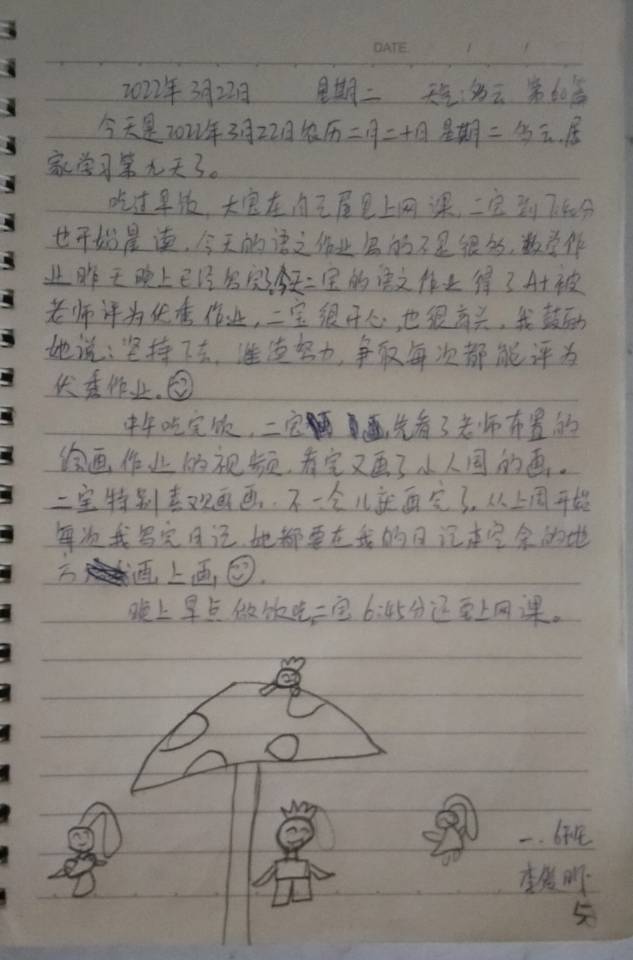 DATE / /
2022年3月22日 星期二 天气:多云 第60篇
今天是2022年3月22日农历二月二十日星期二多云,居
家学习第九天了。
吃过早饭,大宝在自己屋里上网课,二宝到7:40分
也开始晨读,今天的语文作业写的不是很多,数学作
业昨天晚上已经写完了,今天二宝的语文作业得了A+被
老师评为优秀作业,二宝很开心,也很高兴,我鼓励
她说:坚持下去,继续努力,争取每次都能评为
优秀作业。
中午吃完饭,二宝画画,先看了老师布置的
绘画作业的视频,看完又画了小人国的画。
二宝特别喜欢画画,不一会儿就画完了,从上周开始
每次我写完日记,她都要在我的日记本空余的地
方画上画。
晚上早点做饭吃,二宝6:45分还要上网课。
一.6班
李
5